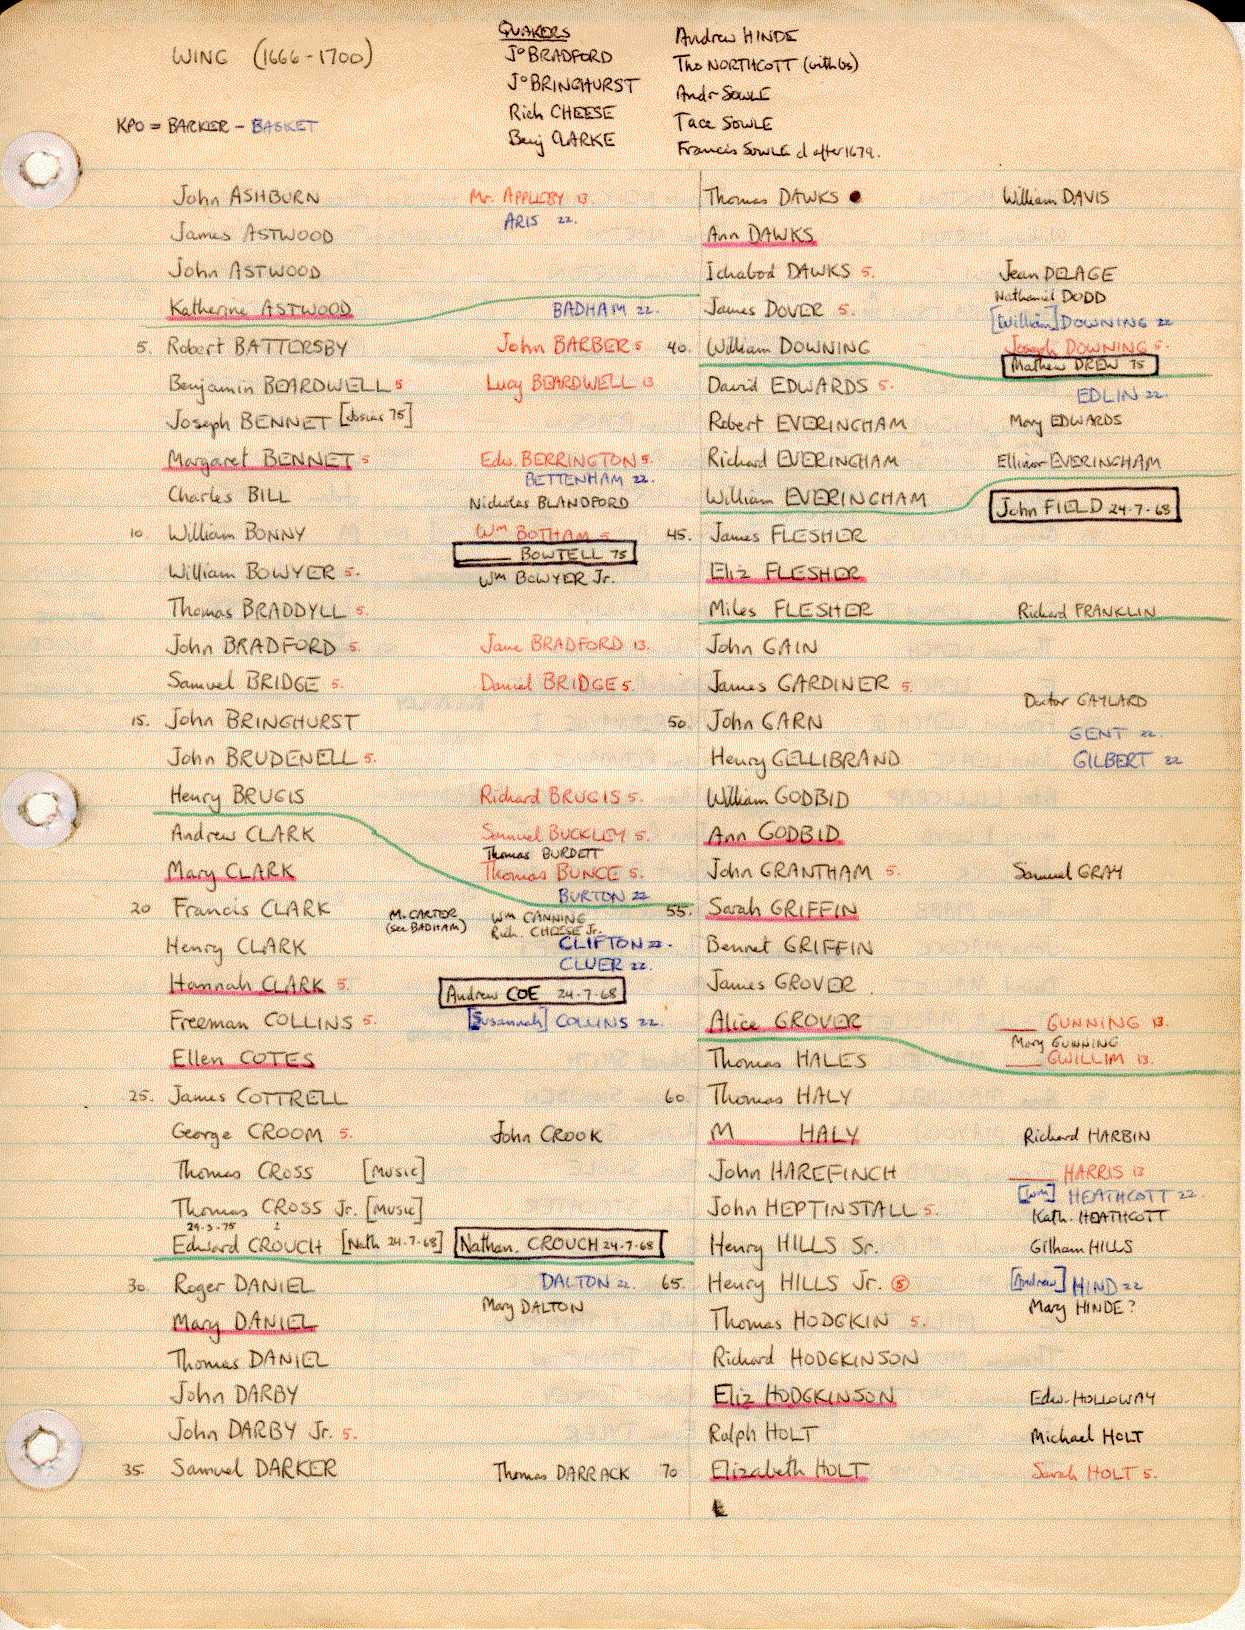 WING (1666-1700)
KPO = BARKER - BASKET
QUAKERS
Jo BRADFORD
Jo BRINGHURST
Rich CHEESE
Benj CLARKE
Andrew HINDE
Tho NORTHCOTT (with bs)
Andr SOWLE
Tace SOWLE
Francis SOWLE d after 1679.
John ASHBURN
James ASTWOOD
John ASTWOOD
Katherine ASTWOOD
5. Robert BATTERSBY
Benjamin BEARDWELL 5
Joseph BENNET [Josias 75]
Margaret BENNET 5
Charles BILL
10. William BONNY
William BOWYER 5.
Thomas BRADDYLL 5.
John BRADFORD 5
Samuel BRIDGE 5.
15. John BRINGHURST
John BRUDENELL 5.
Henry BRUGIS
Andrew CLARK
Mary CLARK
20 Francis CLARK
Henry CLARK
Hannah CLARK 5.
Freeman COLLINS 5.
Ellen COTES
25. James COTTRELL
George CROOM 5.
Thomas CROSS [MUSIC]
Thomas CROSS Jr. [MUSIC]
29-3-75
Edward CROUCH [Nath 24-7-68]
30. Roger DANIEL
Mary DANIEL
Thomas DANIEL
John DARBY
John DARBY Jr. 5.
35. Samuel DARKER
Mr. APPLEBY 13
ARIS 22.
BADHAM 22.
John BARBER 5
Lucy BEARDWELL 13
Edw. BERRINGTON 5.
BETTENHAM 22.
Nicholas BLANDFORD
Wm BOTHAM 5
___ BOWTELL 75
Wm BOWYER Jr.
Jane BRADFORD 13.
Daniel BRIDGE 5.
Richard BRUGIS 5.
Samuel BUCKLEY 5.
Thomas BURDETT
Thomas BUNCE 5.
BURTON 22
M. CARTER
(see BADHAM)
Wm CANNING
Rich. CHEESE Jr.
CLIFTON 22.
CLUER 22.
Andrew COE 24-7-68
[Susannah] COLLINS 22.
John CROOK
Nathan. CROUCH 24-7-68
DALTON 22.
Mary DALTON
Thomas DARRACK
Thomas DAWKS
Ann DAWKS
Ichabod DAWKS 5.
James DOVER 5.
40. William DOWNING
David EDWARDS 5.
Robert EVERINGHAM
Richard EVERINGHAM
William EVERINGHAM
45. James FLESHER
Eliz FLESHER
Miles FLESHER
John GAIN
James GARDINER 5.
50. John GARN
Henry GELLIBRAND
William GODBID
Ann GODBID
John GRANTHAM 5.
55. Sarah GRIFFIN
Bennet GRIFFIN
James GROVER
Alice GROVER
Thomas HALES
60. Thomas HALY
M HALY
John HAREFINCH
John HEPTINSTALL 5.
Henry HILLS Sr.
65. Henry HILLS Jr. 5
Thomas HODGKIN 5.
Richard HODGKINSON
Eliz HODGKINSON
Ralph HOLT
70 Elizabeth HOLT
William DAVIS
Jean DELAGE
Nathaniel DODD
[William] DOWNING 22
Joseph DOWNING 5.
Mathew DREW 75
EDLIN 22.
Mary EDWARDS
Ellinor EVERINGHAM
John FIELD 24-7-68
Richard FRANKLIN
Doctor GAYLARD
GENT 22.
GILBERT 22
Samuel GRAY
___ GUNNING 13.
Mary GUNNING
___ GWILLIM 13.
Richard HARBIN
___ HARRIS 13
[Wm] HEATHCOTT 22.
Kath. HEATHCOTT
Gilham HILLS
[Andrew] HIND 22
Mary HINDE?
Edw. HOLLOWAY
Michael HOLT
Sarah HOLT 5.